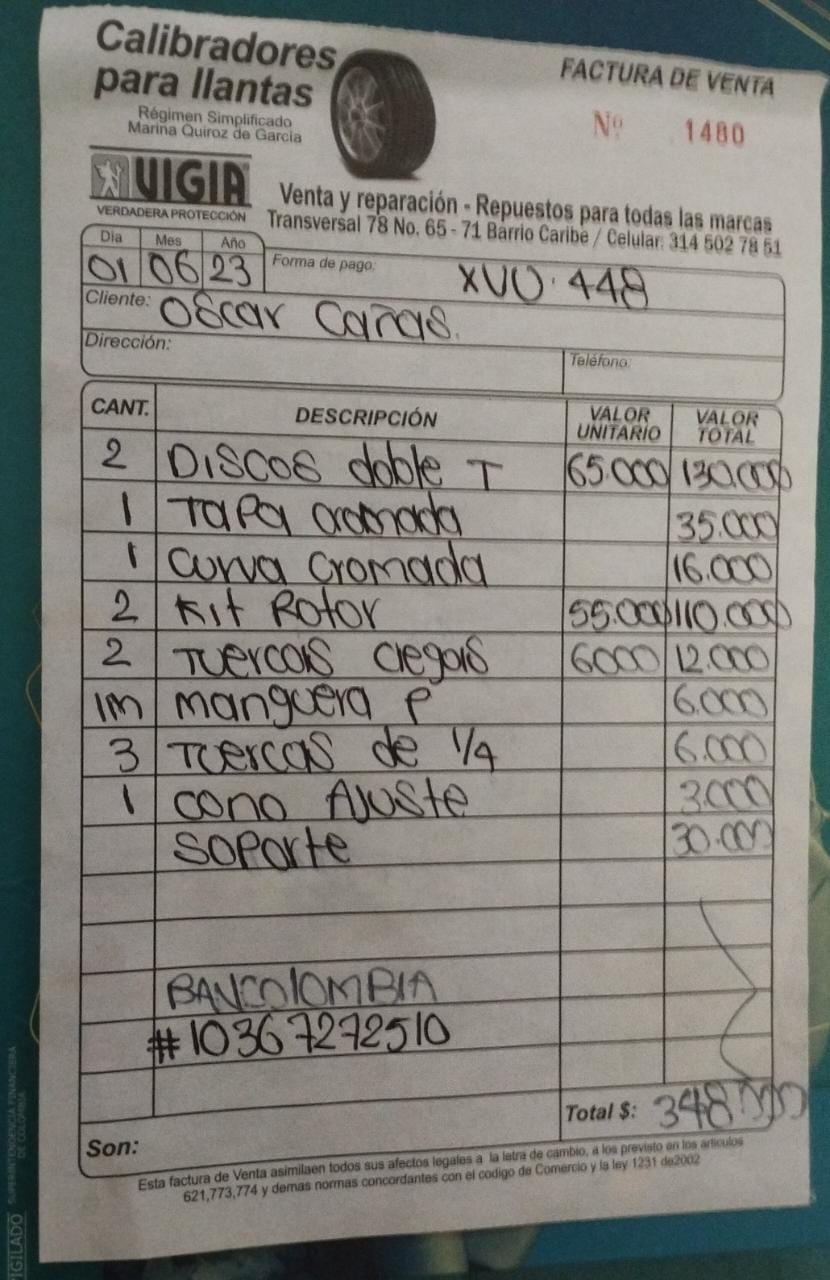 Calibradores
para llantas
Régimen Simplificado
Marina Quiroz de Garcia
FACTURA DE VENTA
Nº 1480
VIGIA
VERDADERA PROTECCIÓN
Venta y reparación - Repuestos para todas las marcas
Transversal 78 No. 65 - 71 Barrio Caribe / Celular: 314 502 78 51
Dia Mes Año
01 06 23
Forma de pago: XVU·448
Cliente: Oscar Cañas.
Dirección:
Teléfono:
CANT. DESCRIPCIÓN VALOR UNITARIO VALOR TOTAL
2 DISCOS doble T 65.000 130.000
1 TAPA cromada 35.000
1 curva cromada 16.000
2 Kit Rotor 55.000 110.000
2 Tuercas ciegas 6000 12.000
1m manguera P 6.000
3 Tuercas de 1/4 6.000
1 cono Ajuste 3.000
SOPORTE 30.000
BANCOLOMBIA
#10367272510
Total $: 348.000
Son:
Esta factura de Venta asimilaen todos sus afectos legales a la letra de cambio, a los previsto en los articulos
621,773,774 y demas normas concordantes con el codigo de Comercio y la ley 1231 de2002
VIGILADO SUPERINTENDENCIA FINANCIERA
DE COLOMBIA